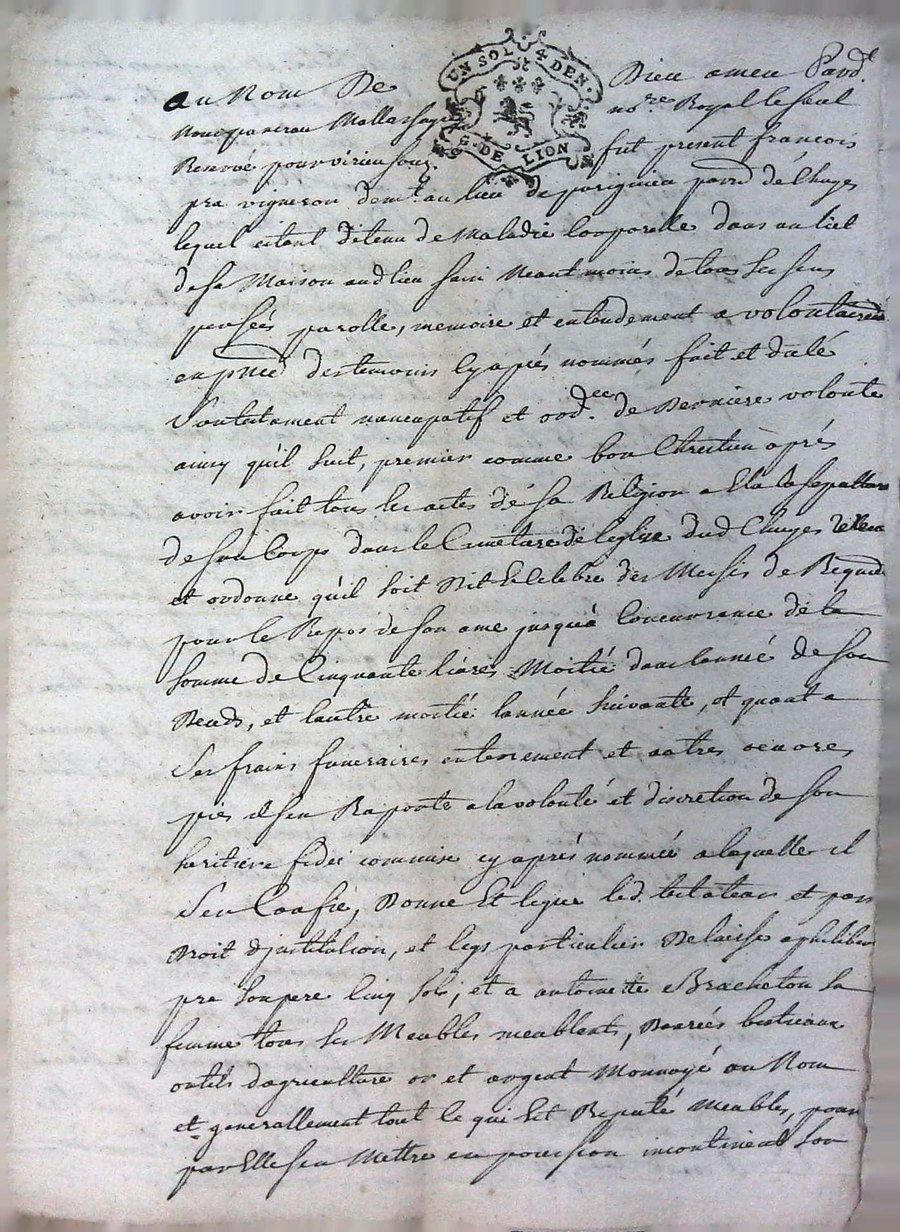 UN SOL 4 DEN.
G. DE LION
au Nom De Dieu amen Pard.t
no.re Royal
Reservé pour fut present francois
pra vigneron dem.t au lieu de pard de Chuyes
lequel estant detenu de Maladie Corporelle dans un lict
de sa Maison aud lieu sain Neantmoins de tous ses sens
pensées parolle, memoire et entendement a volontairem
en pnce des temoins cy apprés nommés fait et dicté
Son testament noncupatif et ord.ce de Derniere volonté
ainsy qu'il suit, premier comme bon Chrestien aprés
avoir fait tous les actes de sa Religion a Elu la sepulture
de son Corps dans le Cimetiere de l'eglise dud Chuyes
et ordonne qu'il soit Dit et Celebré des Messes de Requiem
pour le Repos de son ame jusqu'à Concurrance de la
somme de Cinquante livres Moitié dans l'année de son
Deceds, et l'autre moitié l'année suivante, et quant a
Ses frais funeraires enterrement et autres oeuvres
pies il s'en Raporte a la volonté et discretion de son
heritiere fidei commise cy aprés nommée a laquelle il
S'en Confie, Donne Et legue led. testateur et par
Droit d'jnstitution, et legs particulier Delaisse a philibert
pra son pere Cinq sols, et a antoinette Bracheton sa
femme tous ses Meubles meublants, Danrées bestieaux
outils d'agriculture or et argent Monnoyé ou Non
et generallement tout ce qui est Reputé Meubles, pour
par Elle s'en Mettre en possession incontinent son